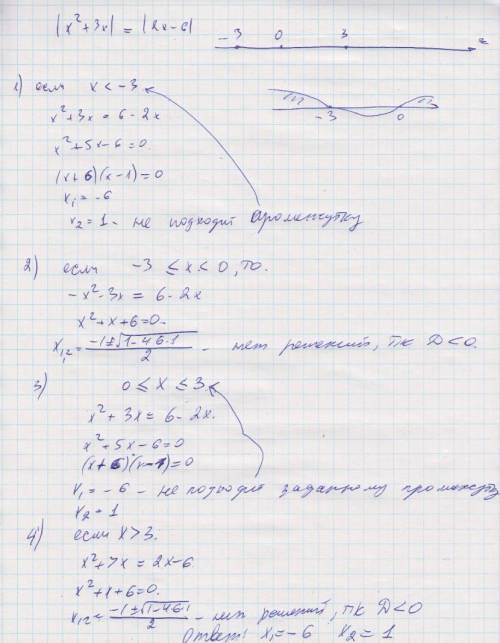 |x²+3x| = |2x-6|
-3 0 3 x
1) если x < -3
-3 0
x²+3x = 6-2x
x²+5x-6=0.
(x+6)(x-1)=0
x₁=-6
x₂=1 - не подходит промежутку
2) если -3 ≤ x < 0, то.
-x²-3x = 6-2x
x²+x+6=0.
x₁,₂= (-1±√(1-4·6·1))/2 - нет решений, т.к D<0.
3) 0 ≤ x ≤ 3.
x²+3x = 6-2x.
x²+5x-6=0
(x+6)(x-1)=0
x₁=-6 - не подходит заданному промежутку
x₂=1
4) если x>3.
x²+3x = 2x-6
x²+x+6=0.
x₁,₂= (-1±√(1-4·6·1))/2 - нет решений, т.к D<0
Ответ: x₁=-6 x₂=1